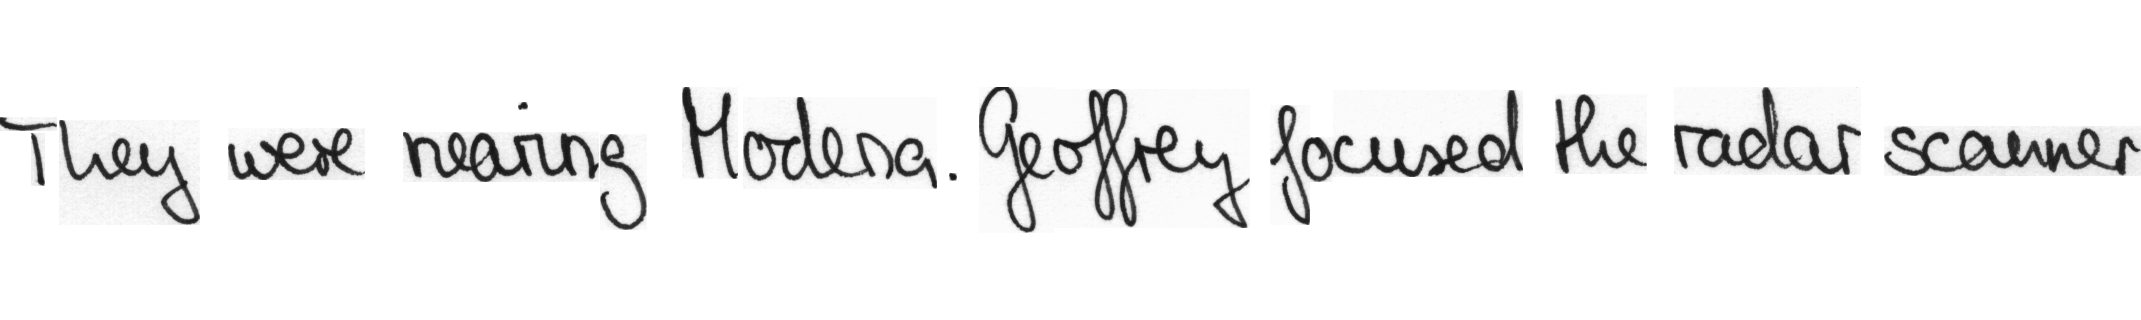 They were nearing Modena. Geoffrey focused the radar scanner